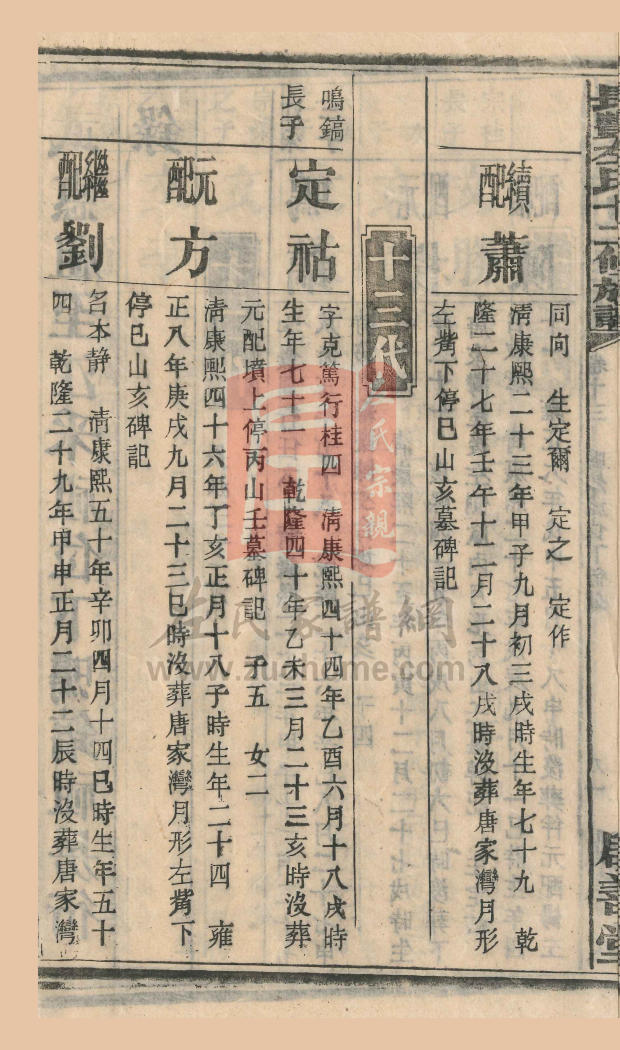 續配
蕭
同向 生定爾 定之 定作
清康熙二十三年甲子九月初三戌時生年七十九 乾
隆二十七年壬午十二月二十八戌時沒葬唐家灣月形
左觜下停巳山亥墓碑記
十三代
鳴鎬
長子
定祜
字克篤行桂四 清康熙四十四年乙酉六月十八戌時
生年七十一 乾隆四十年乙未三月二十三亥時沒葬
元配墳上停丙山壬墓碑記 子五 女二
元配
方
清康熙四十六年丁亥正月十八子時生年二十四 雍
正八年庚戌九月二十三巳時沒葬唐家灣月形左觜下
停巳山亥碑記
繼配
劉
名本靜 清康熙五十年辛卯四月十四巳時生年五十
四 乾隆二十九年甲申正月二十二辰時沒葬唐家灣
左氏宗親
左氏家譜網
www.zuohome.com